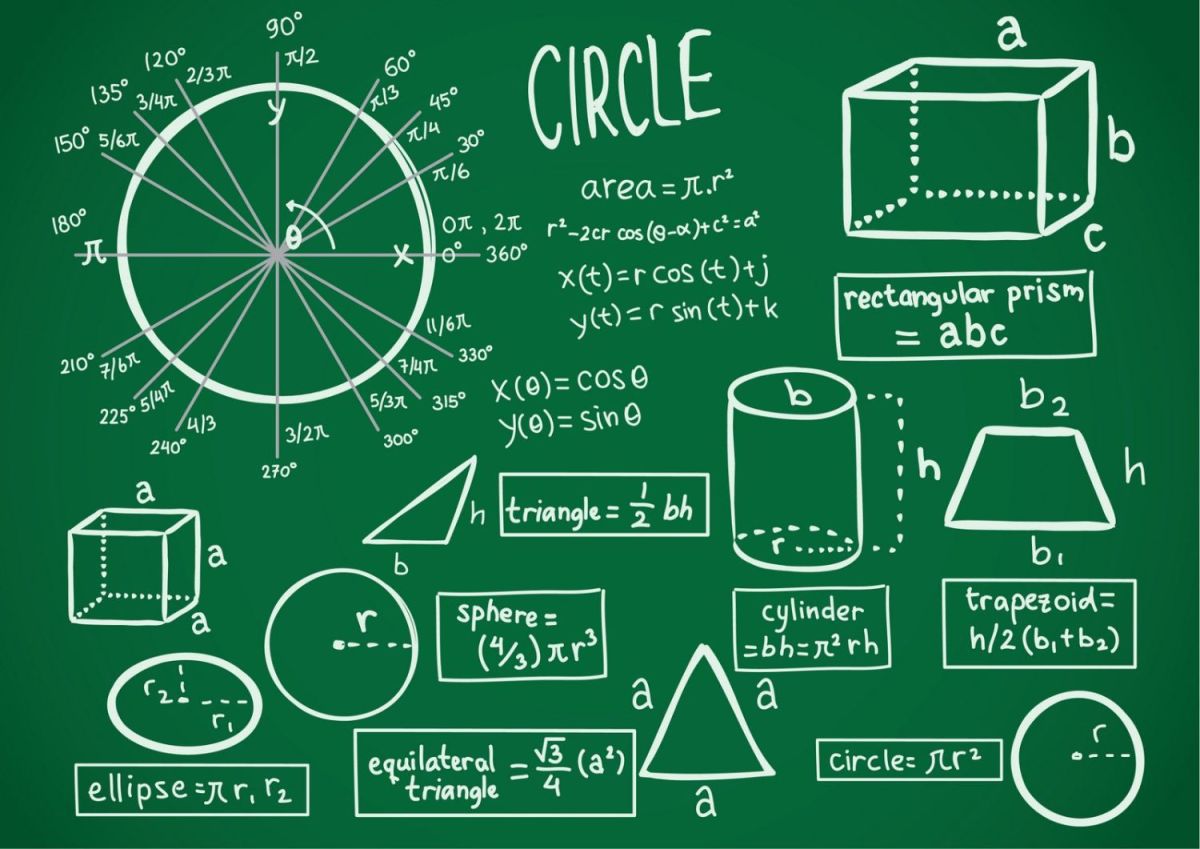 90°
π/2
120°
2/3π
60°
π/3
135°
3/4π
y
45°
π/4
150°
5/6π
30°
π/6
180°
π
θ
x
0π, 2π
0°
360°
11/6π
330°
210°
7/6π
7/4π
315°
225°
5/4π
5/3π
300°
240°
4/3
3/2π
270°
CIRCLE
area = π.r²
r²-2cr cos(θ-α)+c²=a²
x(t)=r cos(t)+j
y(t)=r sin(t)+k
x(θ)=cosθ
y(θ)=sinθ
a
b
c
rectangular prism
= abc
a
a
a
h
b
triangle = 1/2 bh
b
h
r
cylinder
=bh=π²rh
b₂
h
b₁
trapezoid=
h/2(b₁+b₂)
r
sphere =
(4/3)πr³
r₂
r₁
ellipse=πr₁r₂
equilateral
triangle
= √3/4 (a²)
a
a
a
circle= πr²
r